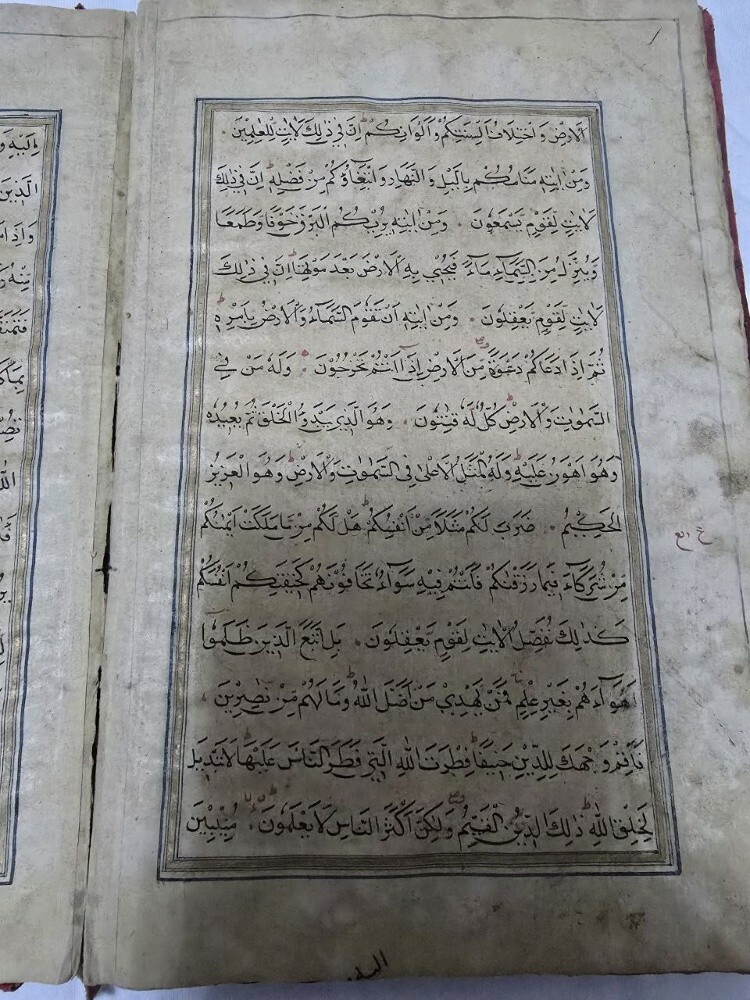 الْاَرْضِ وَاخْتِلَافُ اَلْسِنَتِكُمْ وَاَلْوَانِكُمْ اِنَّ فِي ذٰلِكَ لَاٰيَاتٍ لِلْعٰلِمِينَ
وَمِنْ اٰيٰتِهٖ مَنَامُكُمْ بِالَّيْلِ وَالنَّهَارِ وَابْتِغَاؤُكُمْ مِنْ فَضْلِهٖ اِنَّ فِي ذٰلِكَ
لَاٰيٰتٍ لِقَوْمٍ يَسْمَعُونَ وَمِنْ اٰيٰتِهٖ يُرِيكُمُ الْبَرْقَ خَوْفًا وَطَمَعًا
وَيُنَزِّلُ مِنَ السَّمَاءِ مَاءً فَيُحْيِي بِهِ الْاَرْضَ بَعْدَ مَوْتِهَا اِنَّ فِي ذٰلِكَ
لَاٰيٰتٍ لِقَوْمٍ يَعْقِلُونَ وَمِنْ اٰيٰتِهٖ اَنْ تَقُومَ السَّمَاءُ وَالْاَرْضُ بِاَمْرِهٖ
ثُمَّ اِذَا دَعَاكُمْ دَعْوَةً مِنَ الْاَرْضِ اِذَا اَنْتُمْ تَخْرُجُونَ وَلَهُ مَنْ فِي
السَّمٰوٰتِ وَالْاَرْضِ كُلٌّ لَهُ قَانِتُونَ وَهُوَ الَّذِي يَبْدَؤُ الْخَلْقَ ثُمَّ يُعِيدُهُ
وَهُوَ اَهْوَنُ عَلَيْهِ وَلَهُ الْمَثَلُ الْاَعْلٰى فِي السَّمٰوٰتِ وَالْاَرْضِ وَهُوَ الْعَزِيزُ
الْحَكِيمُ ضَرَبَ لَكُمْ مَثَلًا مِنْ اَنْفُسِكُمْ هَلْ لَكُمْ مِنْ مَا مَلَكَتْ اَيْمٰنُكُمْ
مِنْ شُرَكَاءَ فِيمَا رَزَقْنٰكُمْ فَاَنْتُمْ فِيهِ سَوَاءٌ تَخَافُونَهُمْ كَخِيفَتِكُمْ اَنْفُسَكُمْ
كَذٰلِكَ نُفَصِّلُ الْاٰيٰتِ لِقَوْمٍ يَعْقِلُونَ بَلِ اتَّبَعَ الَّذِينَ ظَلَمُوا
اَهْوَاءَهُمْ بِغَيْرِ عِلْمٍ فَمَنْ يَهْدِي مَنْ اَضَلَّ اللّٰهُ وَمَا لَهُمْ مِنْ نٰصِرِينَ
فَاَقِمْ وَجْهَكَ لِلدِّينِ حَنِيفًا فِطْرَتَ اللّٰهِ الَّتِي فَطَرَ النَّاسَ عَلَيْهَا لَا تَبْدِيلَ
لِخَلْقِ اللّٰهِ ذٰلِكَ الدِّينُ الْقَيِّمُ وَلٰكِنَّ اَكْثَرَ النَّاسِ لَا يَعْلَمُونَ مُنِيبِينَ